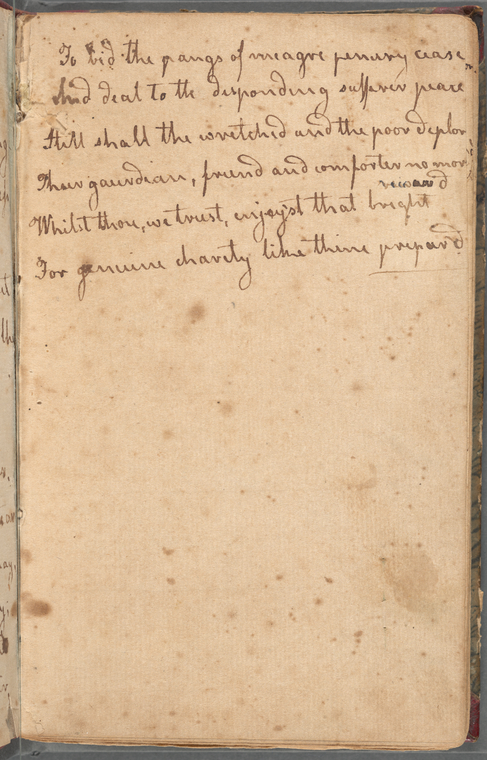 To bid the pangs of meagre penury cease
And deal to the disponding sufferer peace
Still shall the wretched and the poor deplor
Thier gaurdian, friend and comforter no mor
reward
Whilst thou, we trust, enjoy'st that bright
For genuine charity like thine prepar'd